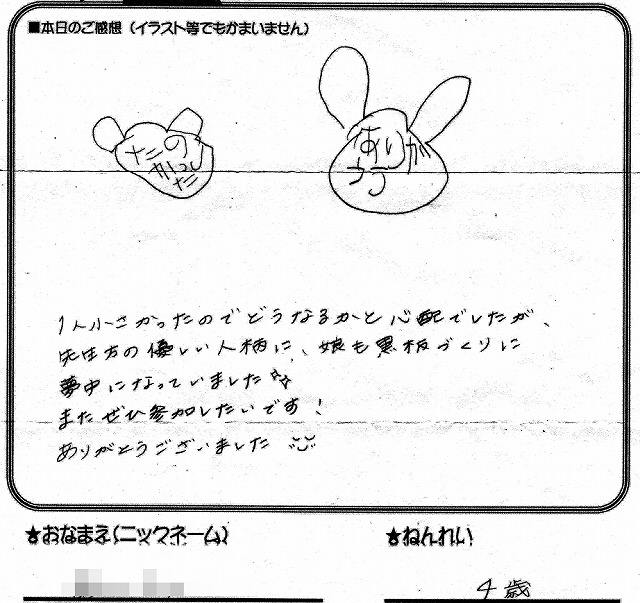 ■本日のご感想（イラスト等でもかまいません）
たのし
かった
ありが
とう
1人小さかったのでどうなるかと心配でしたが、
先生方の優しい人柄に、娘も黒板づくりに
夢中になっていました☆
またぜひ参加したいです！
ありがとうございました
★おなまえ（ニックネーム）
★ねんれい
4歳